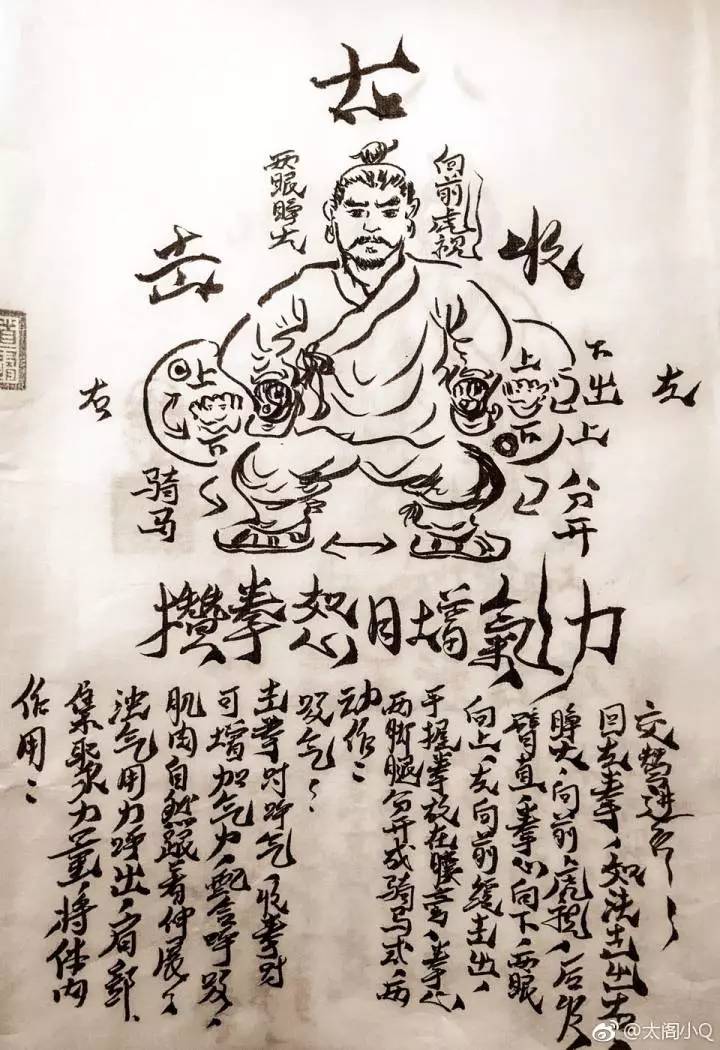 两眼睁大
向前虎视
击
收
右
上
下
上
下
下
出
上
左
骑马
分开
攢拳怒目增氣力
作用：
集聚力量，将体内
浊气用力呼出，肩部、
肌肉自然跟着伸展，
可增加气力，配合呼吸，
击拳时呼气，收拳时
吸气。
动作：
两脚腿分开成骑马式，两
手握拳放在腰旁，拳心
向上，左向前缓击出，
臂直，拳心向下，两眼
睁大，向前虎视，后收
回左拳，如法击出右
交替进行。
@太阁小Q